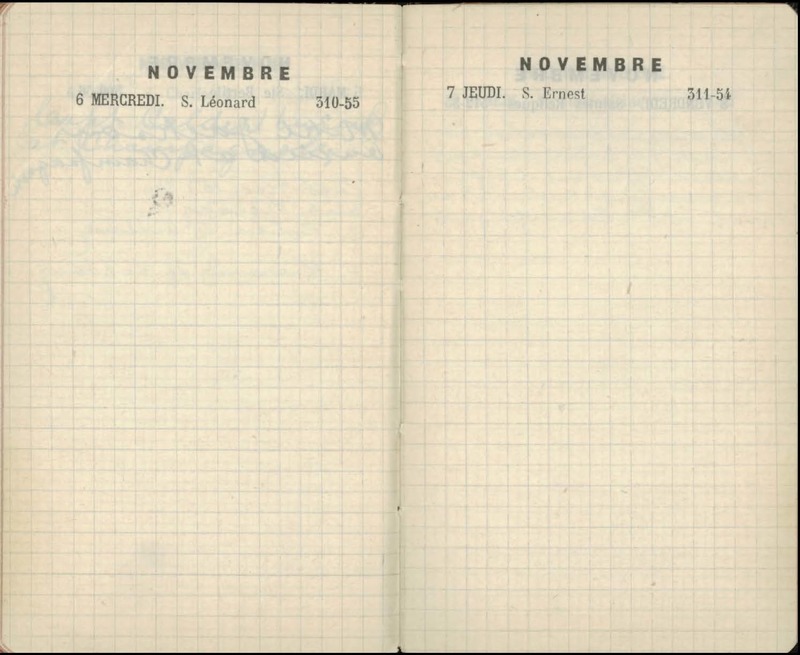 NOVEMBRE
6 MERCREDI. S. Léonard 310-55
NOVEMBRE
7 JEUDI. S. Ernest 311-54